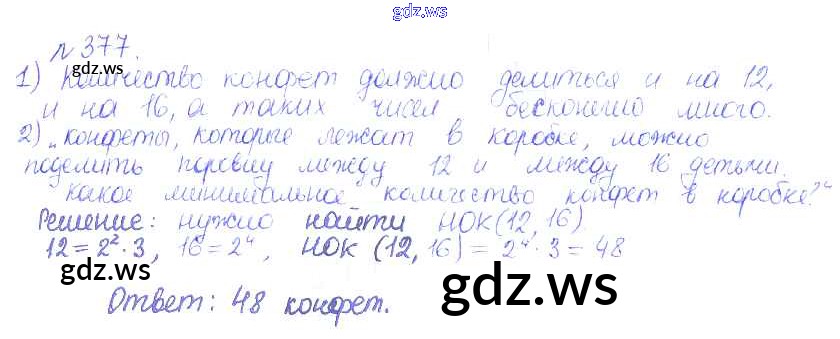 gdz.ws
№ 377.
gdz.ws
1) Количество конфет должно делиться и на 12,
и на 16, а таких чисел бесконечно много.
2) „Конфеты, которые лежат в коробке, можно
поделить поровну между 12 и между 16 детьми.
Какое минимальное количество конфет в коробке?“
Решение: нужно найти НОК(12, 16).
12 = 2² · 3, 16 = 2⁴, НОК (12, 16) = 2⁴ · 3 = 48
gdz.ws
gdz.ws
Ответ: 48 конфет.